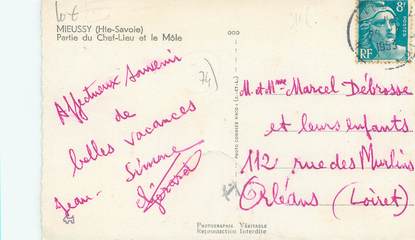 lot
MIEUSSY (Hte-Savoie)
Partie du Chef-Lieu et le Môle
74
Affectueux souvenir
de
belles vacances
Simone
Jean-
Gérard
PHOTO COMBIER MACON (S.-et-L.)
8F
POSTES
RF
1953
M et Mme Marcel Debrosse
et leurs enfants
112 rue des Murlins
Orléans (Loiret)
Photographie Véritable
Reproduction Interdite